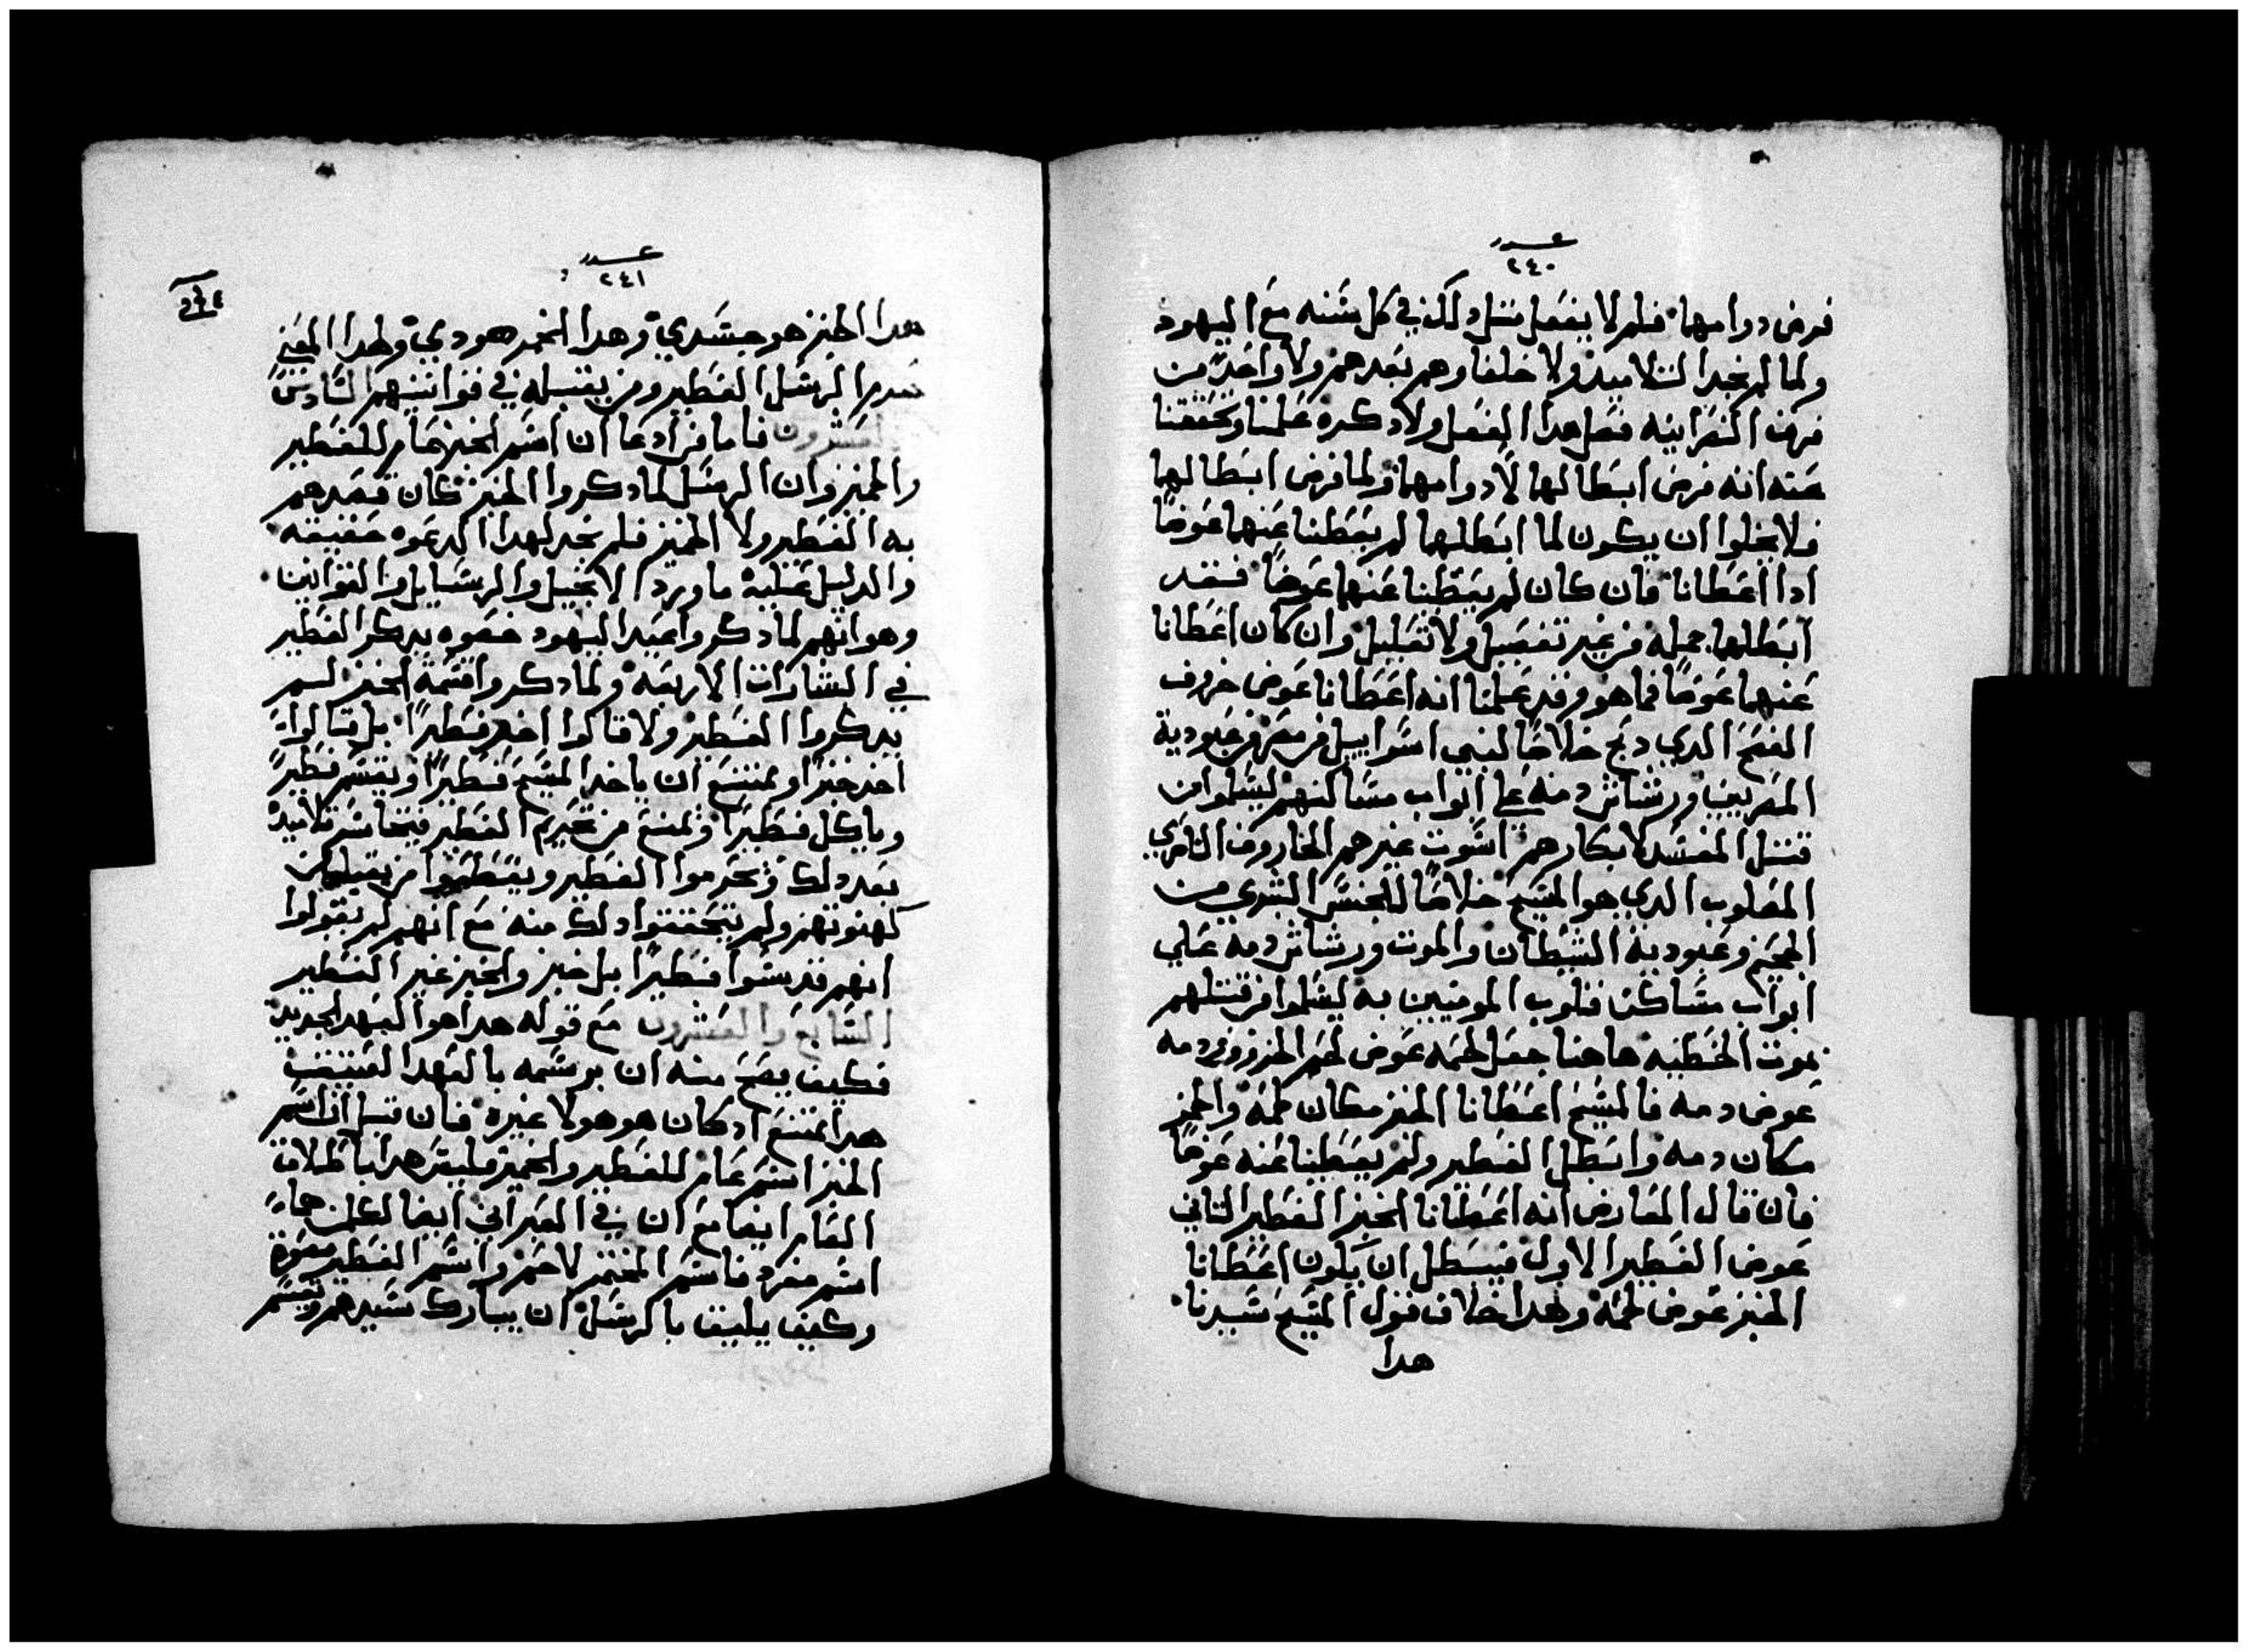 عدد
٢٤٠
فرض دوامهما فلم لا يفعل مثل دلك في كل سنه مع اليهود
ولما لم نجد التلاميد ولا خلفاوهم بعدهم ولا واحد من
فرق النصرانيه فعل هدا الفعل ولا دكره علمنا وتحققنا
عنه انه فرض ابطالها لا دوامهما ولما فرض ابطالها
فلا يخلوا ان يكون لما ابطلها لم يعطنا عنها عوضاً
ادا اعطانا فان كان لم يعطنا عنها عوضاً فقد
ابطلها جمله من غير تفصيل ولا تعليل وان كان اعطانا
عنهما عوضاً فما هو وقد علمنا انه اعطانا عوض خروف
الفصح الدي دبح خلاصاً لبني اسراييل من مصر وعبودية
المصريين ورشاش دمه على ابواب مساكنهم ليسلموا من
قتل المفسد لابكارهم اسوت غيرهم الخاروف الناطق
المصلوب الدي هو المسيح خلاصاً للجنس البشري من
الجحيم وعبودية الشيطان والموت ورشاش دمه علي
ابواب مساكن قلوب المومنين به ليسلموا من قتلهم
بموت الخطيه هاهنا جعل لحمه عوض لحم الخروف ودمه
عوض دمه فالمسيح اعطانا الخبز مكان لحمه والخمر
مكان دمه وابطل الفطير ولم يعطينا عنه عوضاً
فان قال المعارض انه اعطانا الخبز الفطير الثاني
عوض الفطير الاول فيبطل ان يكون اعطانا
الخبز عوض لحمه وهدا خلاف قول المسيح سيدنا
هدا
عدد
٢٤١
هدا الخبز هو جسدي وهدا الخمر هو دمي ولهدا المعني
الرسل الفطير ومن يقبله في قوانينهم السادس
والعشرون فاما من ادعا ان اسم الخبز عام للفطير
والخمير وان الرسل لما دكروا الخبز كان قصدهم
به الفطير ولا الخمير فلم نجد لهدا الدعوه حقيقه
والدليل عليه ما ورد الانجيل والرسايل والقوانين
وهو انهم لما دكروا عيد اليهود خصوه بدكر الفطير
في البشارات الاربعه ولما دكروا قسمة الخبز لم
يدكروا الفطير ولا قالوا اخد فطيراً بل قالوا
اخد خبزاً ويمتنع ان ياخد المسيح فطيراً ويقسم فطيراً
وياكل فطيراً ويمنع من تحريم الفطير فيتحاسر تلاميده
بعد دلك ويحرموا الفطير ويقطعوا من يقبله من
كهنوتهم ولم يتحققوا دلك منه مع انهم لم يقولوا
انهم قدسوا فطيراً بل خبز والخبز غير الفطير
السابع والعشرون مع قوله هدا هو العهد الجديد
فكيف يصح منه ان يوسمه بالعهد العتيق
هدا يمتنع اد كان هو هو لا غيره فان قيل ان اسم
الخبز اسم عام للفطير والخمير فليقر هدا باطلاق
العام ايضا مع ان في العبراني ايضا لكل منهما
اسم مفرد فاسم المختمر لاحم واسم الفطير مصوة
وكيف يليق بالرسل ان يبارك سيدهم ويقسم